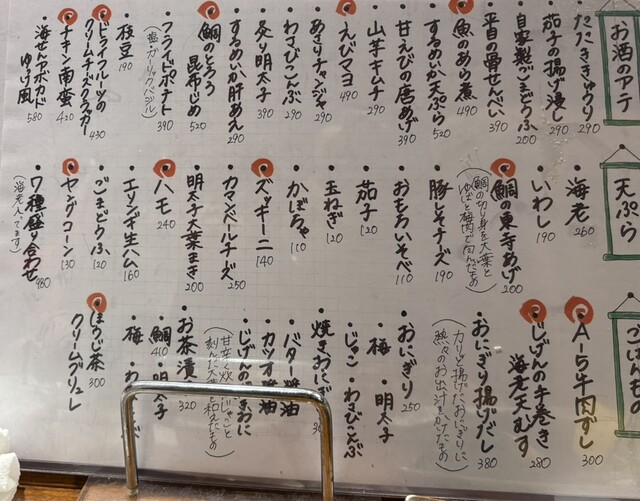 お酒のアテ
・たたききゅうり 290
・茄子の揚げ浸し 290
・自家製ごまどうふ 200
・平目の骨せんべい 390
・魚のあら煮 490
・するめいか天ぷら 520
・甘えびの唐あげ 390
・山芋キムチ 290
・えびマヨ 490
・あさりチャンジャ 290
・わさびこんぶ 290
・炙り明太子 390
・するめいか肝あえ 290
・鯛のとろろ昆布じめ 520
・フライドポテト 390
(塩・ガーリックペッパー)
・枝豆 190
・ドライフルーツの
クリームチーズクラッカー 430
・チキン南蛮 420
・海せんアボカド
ゆっけ風 580
天ぷら
・海老 260
・いわし 190
・鯛の東寺あげ 200
(鯛の切り身を大葉と
ゆばと梅肉で包んだもの)
・豚とチーズ 190
・おもちいそべ 110
・茄子 120
・玉ねぎ 120
・かぼちゃ 110
・ズッキーニ 140
・カマンベールチーズ 250
・明太子大葉まき 200
・ハモ 240
・エリンギ生ハム 160
・ごまどうふ 120
・ヤングコーン 130
・7種盛り合わせ 980
(海老入ってます)
ごはんもの
・A-5牛肉ずし 300
・じげんの手巻き
海老天むす 280
・おにぎり揚げだし 380
(カリッと揚げたおにぎりに
熱々のお出汁をかけたもの)
・おにぎり 250
・梅・明太子
・じゃこ・わさびこんぶ
・焼きおに
・バター醤油
・カツオ醤油
・じげんのまかない
・お茶漬 320
・鯛 410・明太子
・梅・わ
・ほうじ茶
クリームブリュレ 300